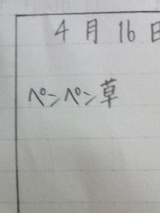 4月16日
ペンペン草